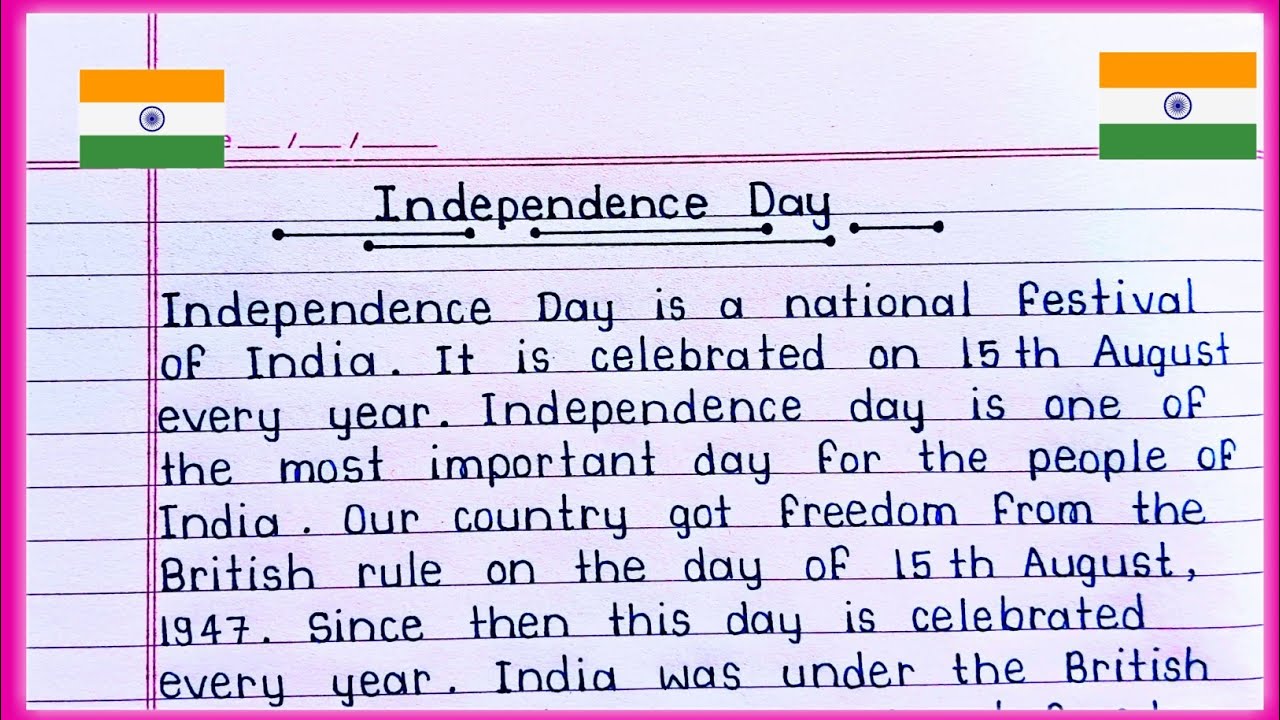 Independence Day
Independence Day is a national festival
of India. It is celebrated on 15th August
every year. Independence day is one of
the most important day for the people of
India. Our country got freedom from the
British rule on the day of 15th August,
1947. Since then this day is celebrated
every year. India was under the British